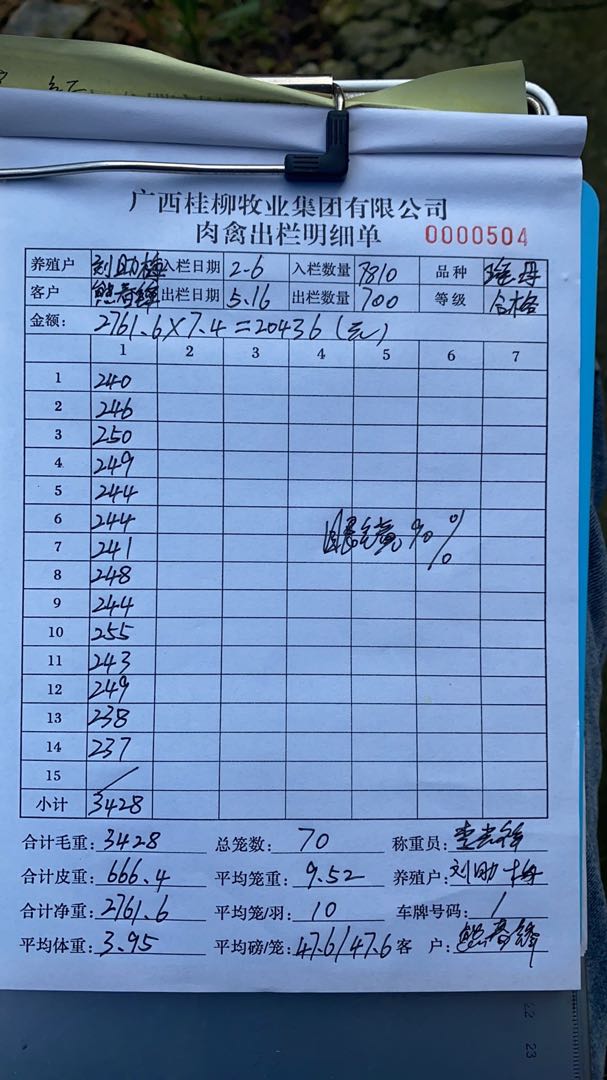 广西桂柳牧业集团有限公司
肉禽出栏明细单 0000504
养殖户 刘助梅 入栏日期 2-6 入栏数量 7810 品种
客户 出栏日期 5.16 出栏数量 700 等级 合格
金额: 2761.6×7.4=20436(元)
1 2 3 4 5 6 7
1 240
2 246
3 250
4 249
5 244
6 244
7 241
8 248
9 244
10 255
11 243
12 249
13 238
14 237
15 /
小计 3428
90%
合计毛重: 3428 总笼数: 70 称重员:
合计皮重: 666.4 平均笼重: 9.52 养殖户: 刘助梅
合计净重: 2761.6 平均笼/羽: 10 车牌号码: /
平均体重: 3.95 平均磅/笼: 47.6/47.6 客 户:
22 23